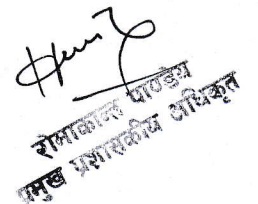 रोमाकान्त पाण्डेय
प्रमुख प्रशासकीय अधिकृत